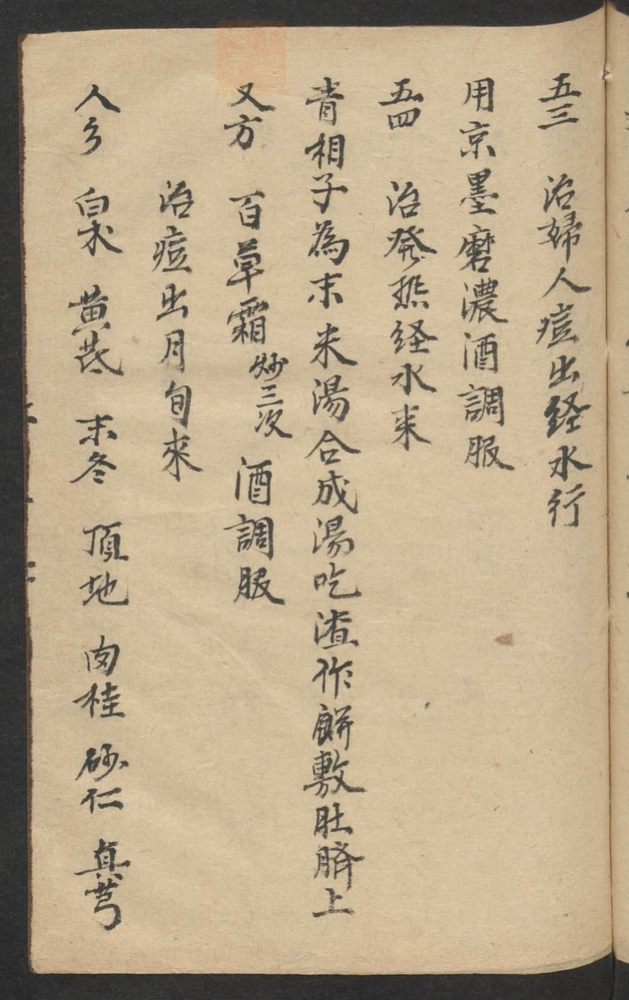 五三 治婦人痘出経水行
用京墨磨濃酒調服
五四 治發热経水来
青相子為末米湯合成湯吃渣作餅敷肚臍上
又方 百草霜炒三次 酒調服
治痘出月旬來
人参 白术 黄芪 末冬 頂地 肉桂 砂仁 真芎